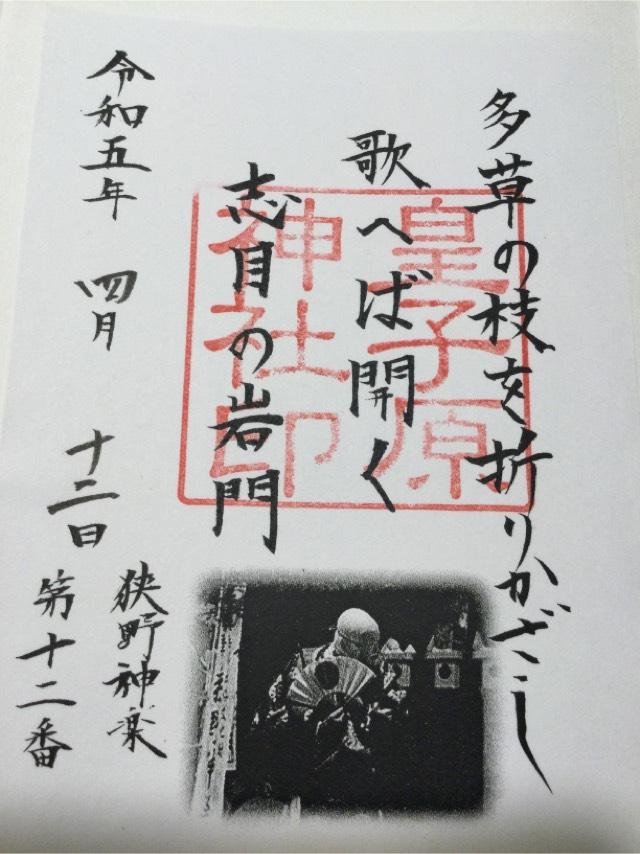 多草の枝を折りかざし
歌へば開く
志目の岩門
皇子原
神社印
令和五年 四月 十二日
狭野神楽
第十二番